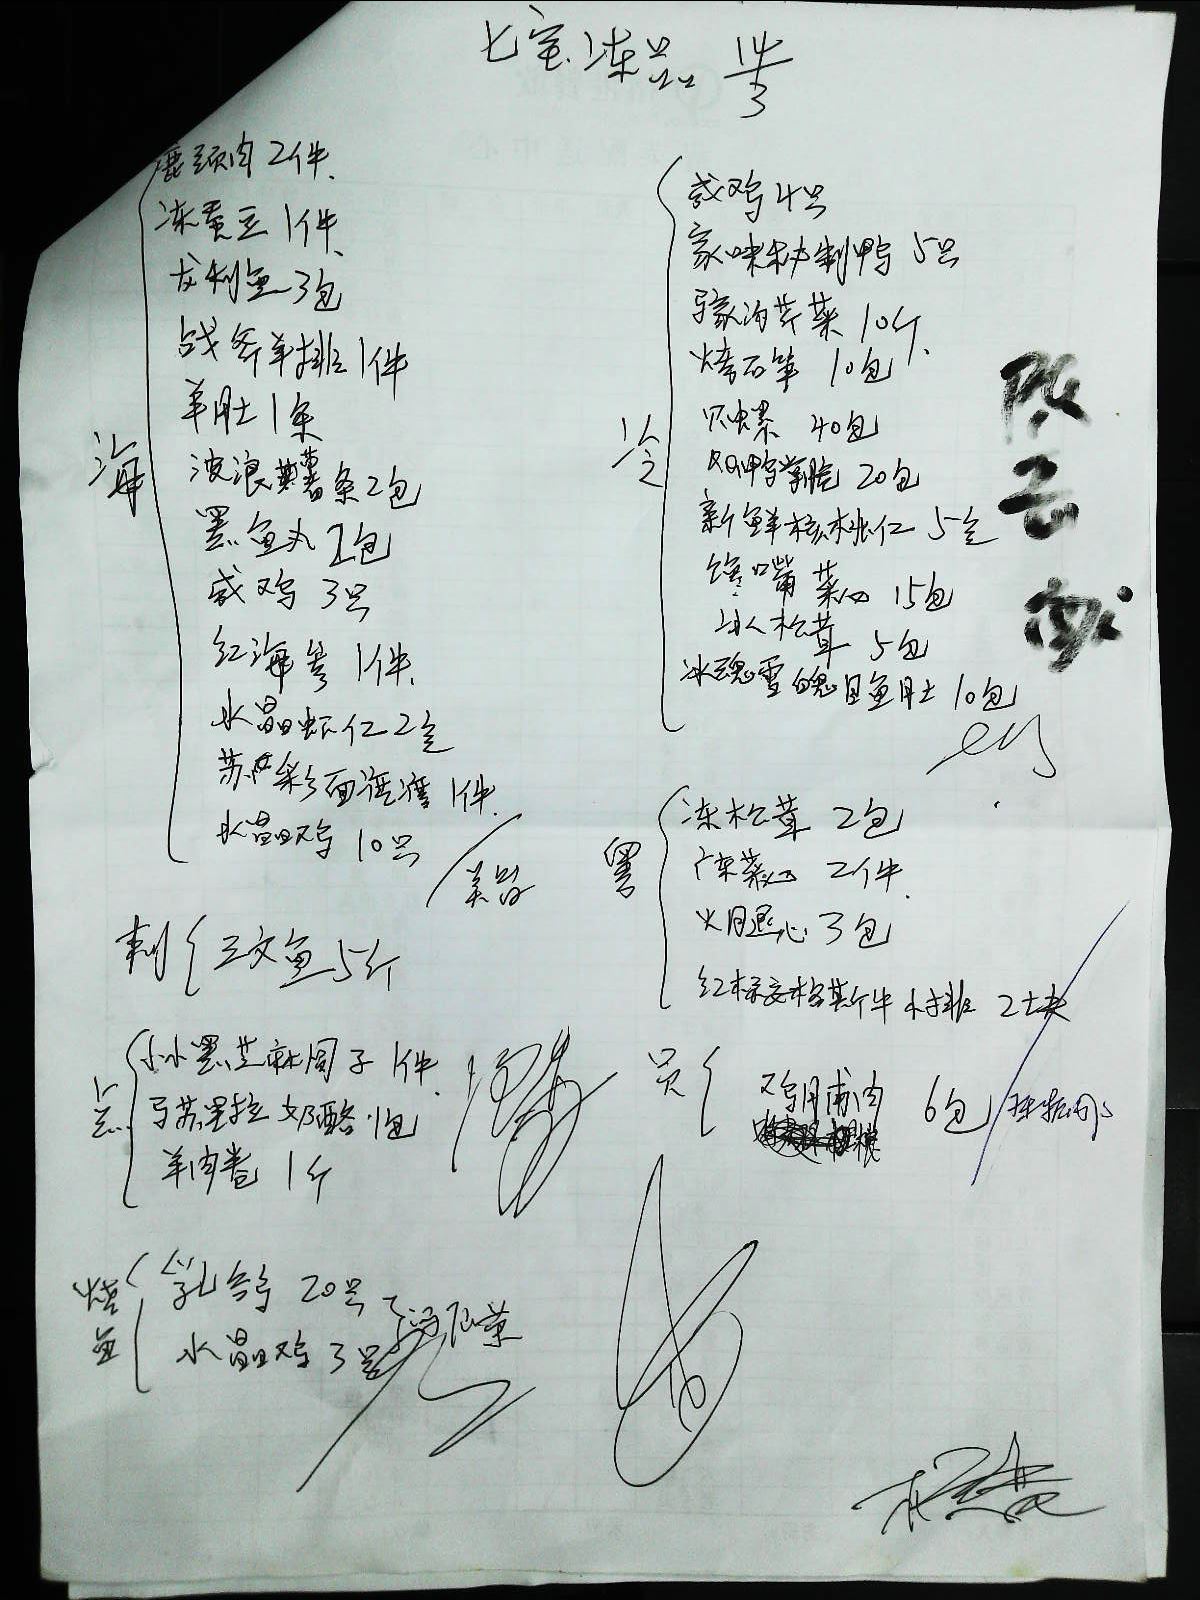 七宝冻品 14/3
海
鹿颈肉 2件
冻蚕豆 1件
龙利鱼 3包
战斧羊排 1件
羊肚 1条
波浪薯条 2包
墨鱼丸 2包
咸鸡 3只
红海参 1件
水晶虾仁 2盒
苏 彩面 1件
水晶鸡 10只
刺
三文鱼 5斤
点
小小黑芝麻圆子 1件
马苏里拉奶酪 1包
羊肉卷 1斤
烧
乳鸽 20只
水晶鸡 3只
冷
咸鸡 4只
家味秘制鸭 5只
马家沟芹菜 10斤
烤石笋 10包
贝螺 40包
鸭掌脱 20包
新鲜核桃仁 5盒
馋嘴菜心 15包
冰人松茸 5包
冰魂雪魄目鱼肚 10包
粤
冻松茸 2包
广东菜心 2件
火腿心 3包
红标安格斯牛排 2块
员
鸡脯肉 6包